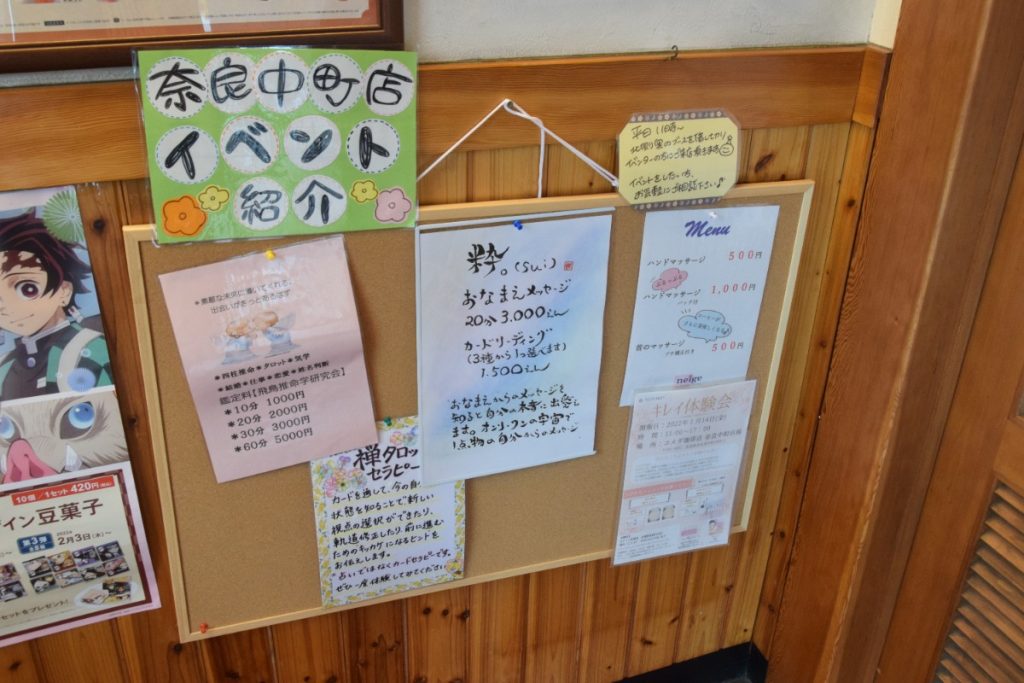 奈良中町店
イベント
紹介
平日11時〜
イベントをしたい方、
お気軽にご相談下さい♪
*素敵な未来に導いてくれる、
出会いがきっとあるはず
*四柱推命*タロット*気学
*結婚*仕事*恋愛*姓名判断
鑑定料【飛鳥推命学研究会】
*10分 1000円
*20分 2000円
*30分 3000円
*60分 5000円
粋。(sui)
おなまえメッセージ
20分 3,000えん
カードリーディング
(3種から1つ選べます)
1,500えん
おなまえからのメッセージを
知ると自分の本当に出会え
ます。オンリーワンの宇宙で
1点物の自分からのメッセージ
禅タロット
セラピー
カードを通して、今の自
状態を知ることで新しい
視点の選択ができたり、
軌道修正したり、前に進む
ためのキッカケになるヒントを
お伝えします。
占いではなくカードセラピーです。
ぜひ一度体験してみてください
Menu
ハンドマッサージ 500円
ハンドマッサージ 1,000円
パック付
首のマッサージ 500円
neige
キレイ体験会
開催日:2022年1月14日(金)
時 間:11:00〜17:00
場 所:コメダ珈琲店 奈良中町店様
10個/1セット 420円(税込)
イン豆菓子
第3弾
2月3日(木)〜
セットをプレゼント!